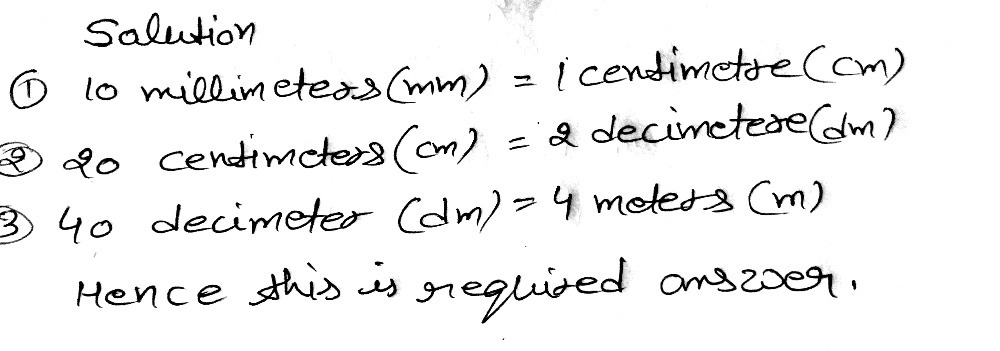 Solution
① 10 millimeters (mm) = 1 centimetre (cm)
② 20 centimeters (cm) = 2 decimetere (dm)
③ 40 decimeter (dm) = 4 meters (m)
Hence this is required answer.